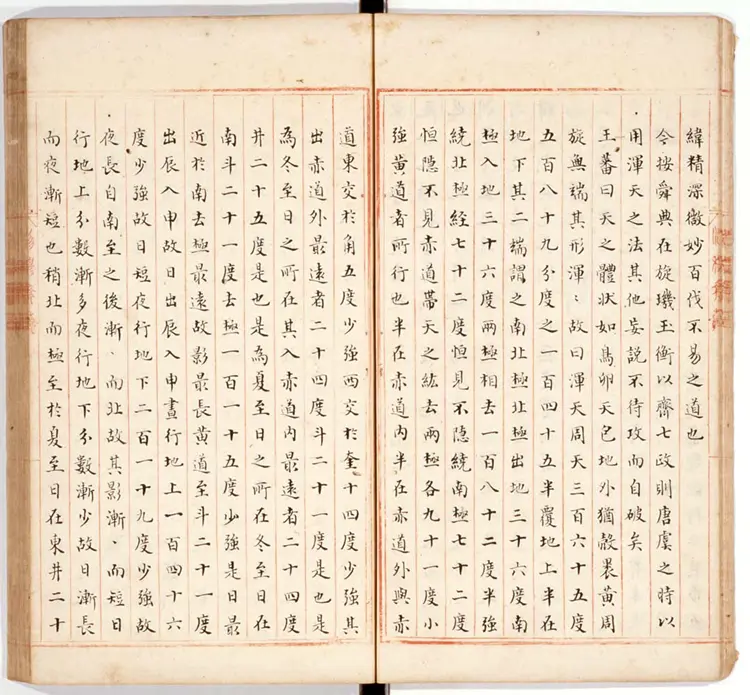 緯精深微妙百伐不易之道也
今按舜典在旋璣玉衡以齊七政則唐虞之時以
用渾天之法其他妄說不待攻而自破矣
王蕃曰天之體狀如鳥卵天包地外猶殼褁黃周
旋無端其形渾〻故曰渾天周天三百六十五度
五百八十九分度之一百四十五半覆地上半在
地下其二端謂之南北極北極出地三十六度南
極入地三十六度兩極相去一百八十二度半強
繞北極經七十二度恒見不隱繞南極七十二度
恒隱不見赤道帶天之紘去兩極各九十一度小
強黃道者所行也半在赤道內半在赤道外與赤
道東交於角五度少強西交於奎十四度少強其
出赤道外最遠者二十四度斗二十一度是也是
為冬至日之所在其入赤道內最遠者二十四度
井二十五度是也是為夏至日之所在冬至日在
南斗二十一度去極一百一十五度少強是日最
近於南去極最遠故影最長黃道至斗二十一度
出辰入申故日出辰入申晝行地上一百四十六
度少強故日短夜行地下二百一十九度少強故
夜長自南至之後漸〻而北故其影漸〻而短日
行地上分數漸多夜行地下分數漸少故日漸長
而夜漸短也稍北而極至於夏至日在東井二十